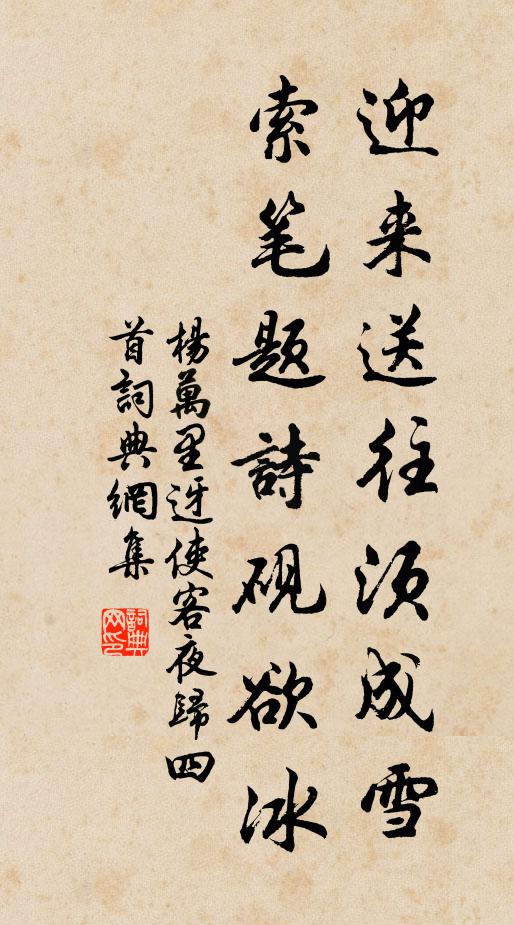 迎来送往须成雪
索笔题詩砚欲冰
楊萬里迓使客夜歸四
首詞典網集
詞典网印